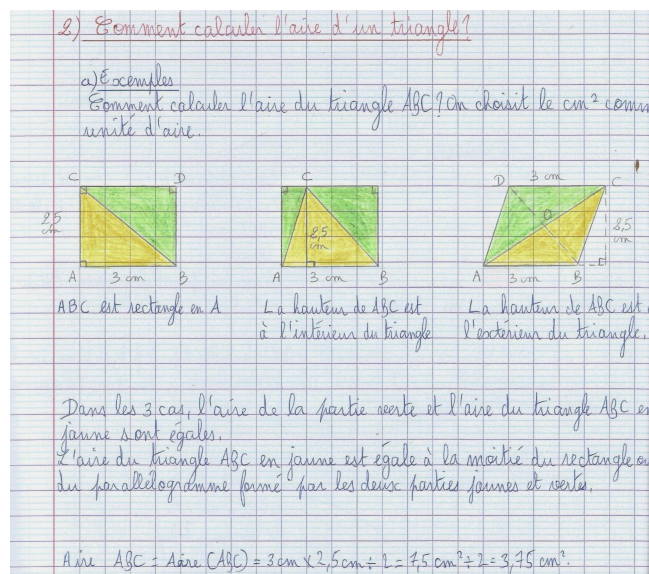 2) Comment calculer l'aire d'un triangle?
a) Exemples
Comment calculer l'aire du triangle ABC? On choisit le cm² comm
unité d'aire.
C D
2,5 cm
A 3 cm B
C
2,5 cm
A 3 cm B
D 3 cm C
O
2,5 cm
A 3 cm B
ABC est rectangle en A
La hauteur de ABC est
à l'intérieur du triangle
La hauteur de ABC est
l'extérieur du triangle.
Dans les 3 cas, l'aire de la partie verte et l'aire du triangle ABC en
jaune sont égales.
L'aire du triangle ABC en jaune est égale à la moitié du rectangle ou
du parallélogramme formé par les deux parties jaunes et vertes.
Aire ABC = Aire (ABC) = 3 cm × 2,5 cm ÷ 2 = 7,5 cm² ÷ 2 = 3,75 cm².